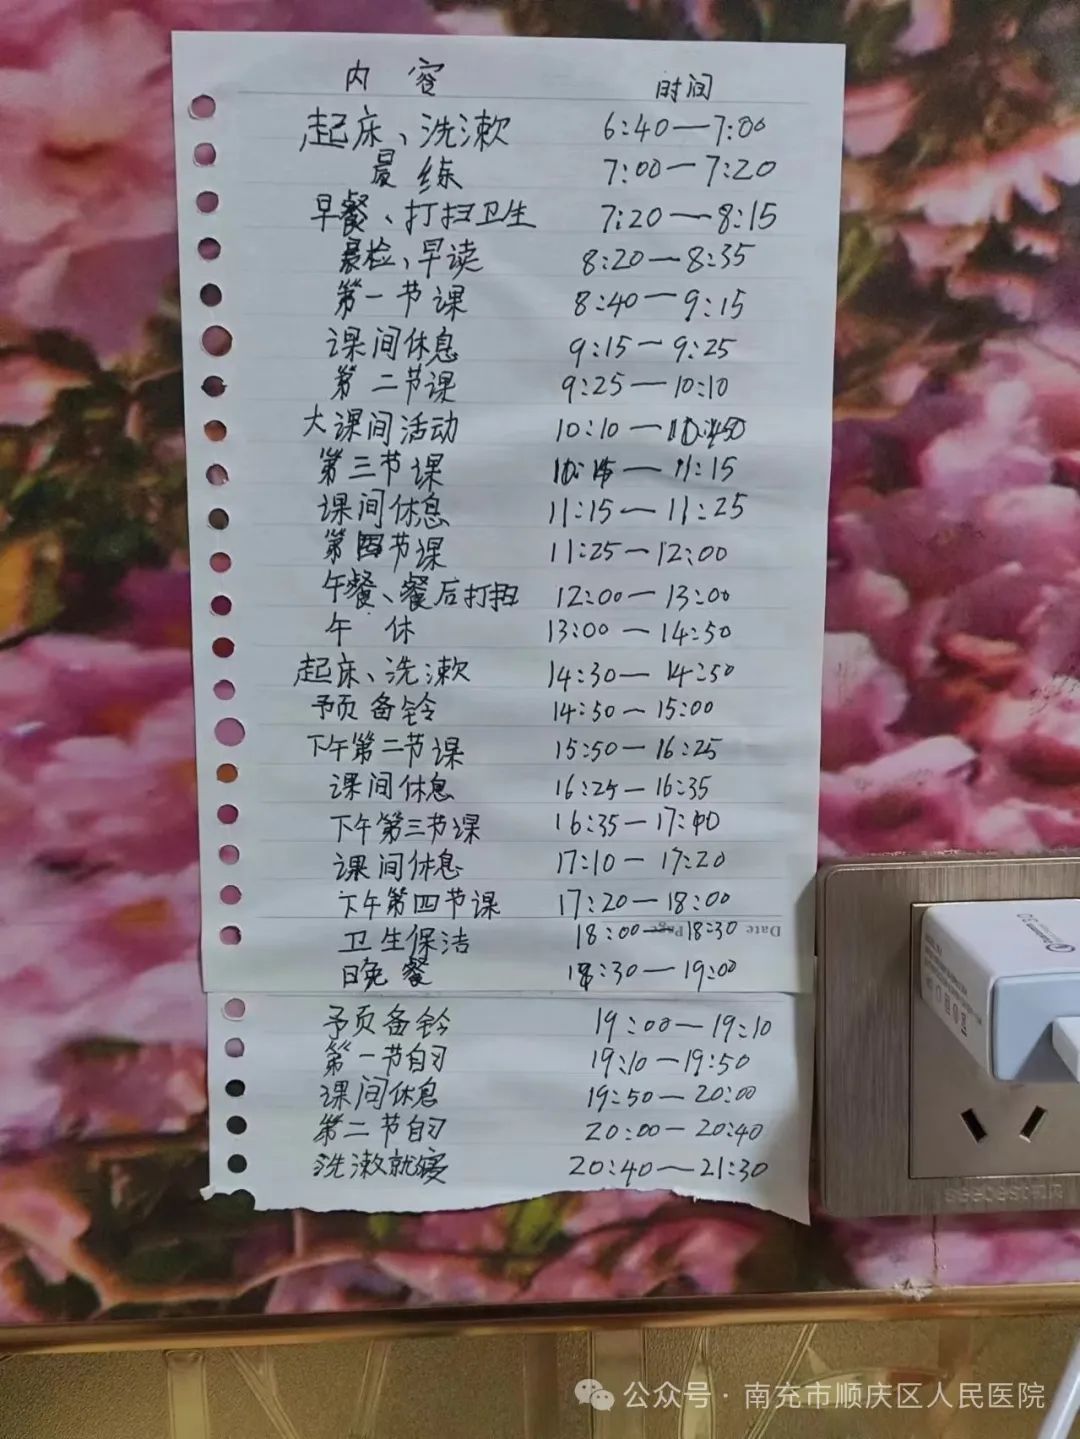 内 容 时间
起床、洗漱 6:40—7:00
晨 练 7:00—7:20
早餐、打扫卫生 7:20—8:15
晨检、早读 8:20—8:35
第一节课 8:40—9:15
课间休息 9:15—9:25
第二节课 9:25—10:10
大课间活动 10:10—
第三节课 —11:15
课间休息 11:15—11:25
第四节课 11:25—12:00
午餐、餐后打扫 12:00—13:00
午 休 13:00—14:50
起床、洗漱 14:30—14:50
予页备铃 14:50—15:00
下午第二节课 15:50—16:25
课间休息 16:25—16:35
下午第三节课 16:35—17:10
课间休息 17:10—17:20
下午第四节课 17:20—18:00
Date
Page
卫生保洁 18:00—18:30
晚餐 18:30—19:00
予页备铃 19:00—19:10
第一节自习 19:10—19:50
课间休息 19:50—20:00
第二节自习 20:00—20:40
洗漱就寝 20:40—21:30
公众号·南充市顺庆区人民医院